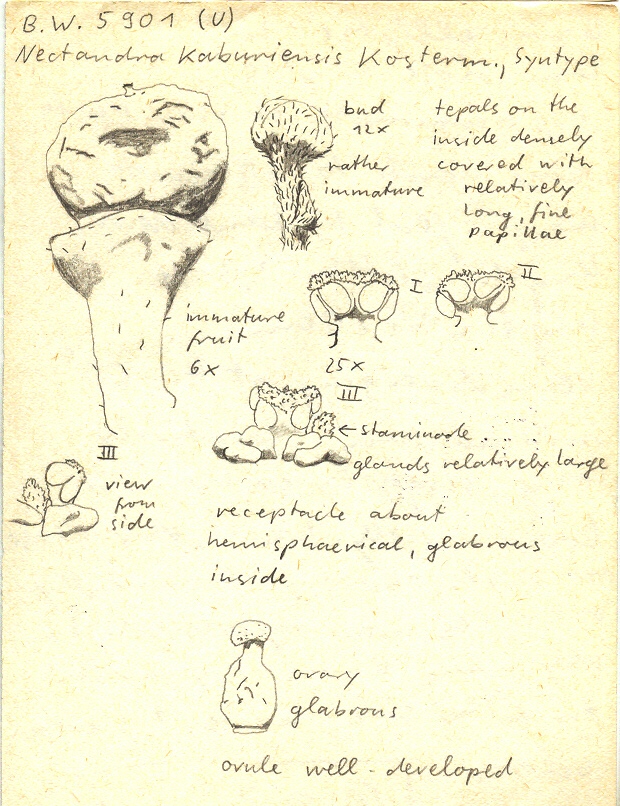 B.W. 5901 (U)
Nectandra Kaburiensis Kosterm., Syntype
bud
12x
rather
immature
tepals on the
inside densely
covered with
relatively
long, fine
papillae
I
II
immature
fruit
6x
25x
III
← staminode
glands relatively large
III
view
from
side
receptacle about
hemisphaerical, glabrous
inside
ovary
glabrous
ovule well-developed